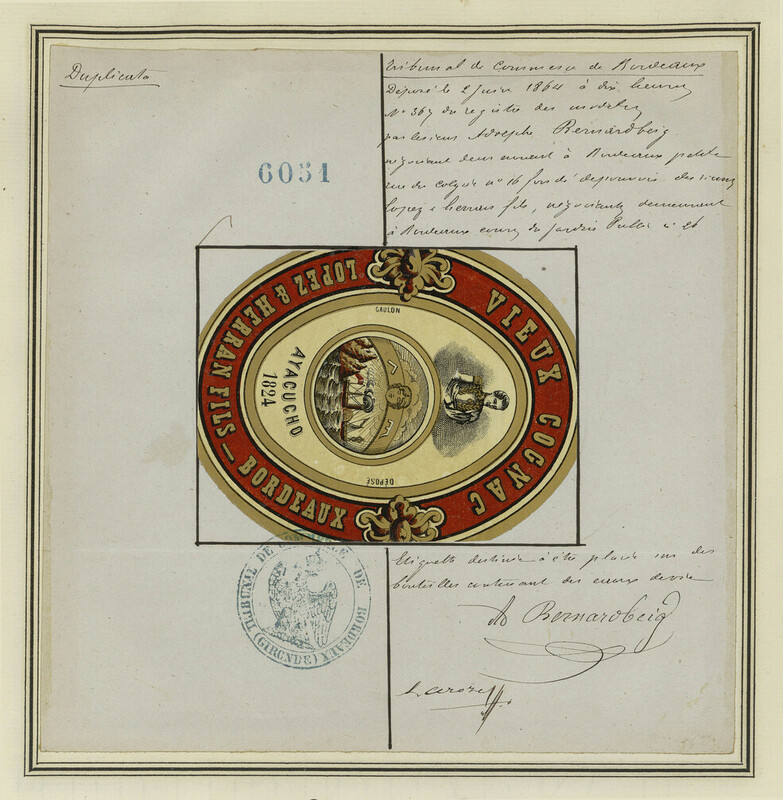 Duplicata
Tribunal de Commerce de Bordeaux
Déposé le 2 Juin 1864 à dix heures
N° 367 du registre des modèles
par le sieur Adolphe Bernardbeig
négociant demeurant à Bordeaux petite
rue du Colysée n° 16 fondé de pouvoir des sieurs
Lopez & herran fils, négociants demeurant
à Bordeaux cours du jardin Public n° 26
6051
LOPEZ & HERRAN FILS — BORDEAUX
VIEUX COGNAC
GAULON
AYACUCHO
1824
DÉPOSÉ
TRIBUNAL DE COMMERCE DE BORDEAUX
(GIRONDE)
Etiquette destinée à être placée sur des
bouteilles contenant des eaux de vie
Ad Bernardbeig